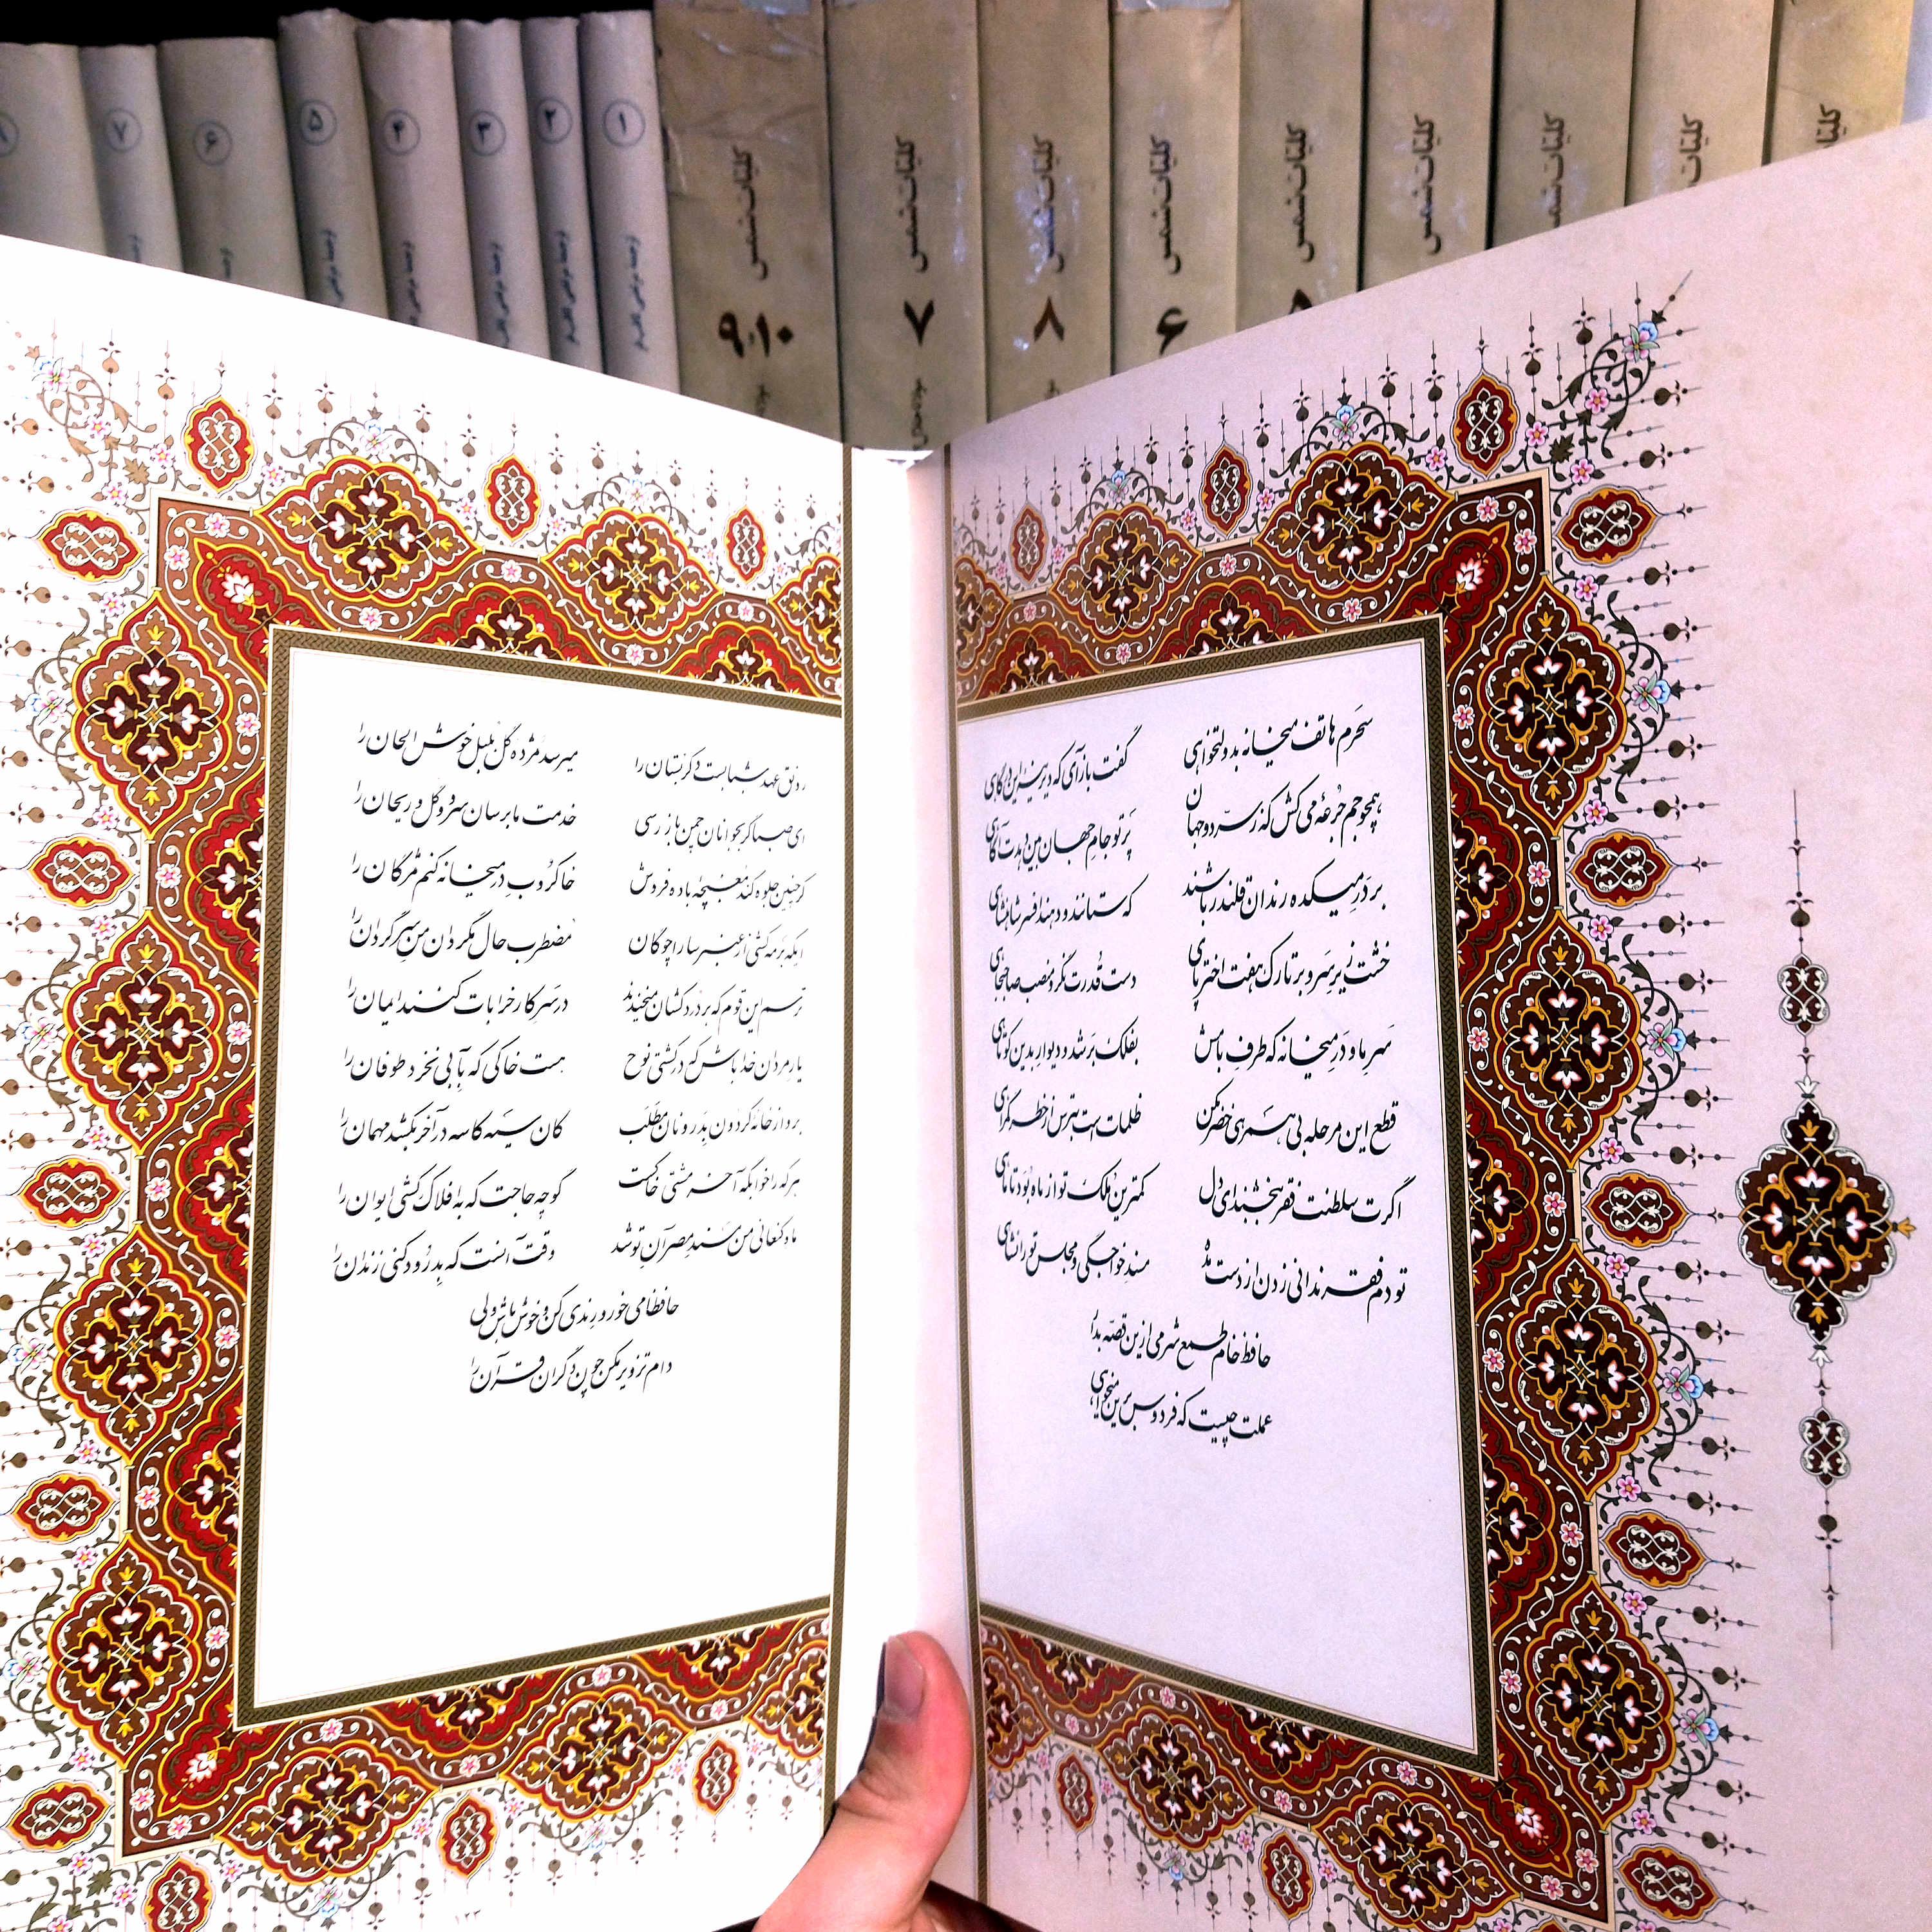 سَحَرم هاتف میخانه بدولتخواهی گفت بازآی که دیرینه این درگاهی
همچو جم جرعهٔ می کش که ز سرّ دو جهان پَرتو جام جهان بین دهدت آگاهی
بر دَرِ میکده رندان قلندر باشند که ستانند و دهند افسر شاهنشاهی
خشت زیر سَر و بر تارک هفت اختر پای دست قُدرت نگر و منصب صاحبجاهی
سَرِ ما و دَرِ میخانه که طرفِ بامش بفلک بَر شد و دیوار بدین کوتاهی
قطع این مرحله بی همرهی خضر مکن ظلمات است بترس از خطر گمراهی
اگرت سلطنت فقر ببخشند ای دل کمترین مُلک تو از ماه بُوَد تا ماهی
تو دم فقر ندانی زدن از دست مده مسند خواجگی و مجلس تورانشاهی
حافظ خام طمع شرمی ازین قصّه بدار
عملت چیست که فردوس برین میخواهی
رونق عهد شبابست دگر بُستان را میرسد مُژده گل بلبل خوش الحان را
ای صبا گر بجوانان چمن باز رسی خدمت ما برسان سرو و گل و ریحان را
گر چنین جلوه کند مُغبچهٔ باده فروش خاکروب دَرِ میخانه کنم مژگان را
ایکه بر مه کشی از عنبر سارا چوگان مضطرب حال مگردان من سرگردان را
ترسم این قوم که بر دُردکشان میخندند در سَرِ کار خرابات کنند ایمان را
یارِ مردان خدا باش که در کشتی نوح هست خاکی که بآبی نخرد طوفان را
برو از خانهٔ گردون بِدَر و نان مَطَلب کان سیَه کاسه در آخر بکشد مهمان را
هر که را خوابگه آخر مُشتی خاکست گو چه حاجت که به افلاک کشی ایوان را
ماه کنعانی من مَسند مِصر آنِ تو شد وقت آنست که بِدرُود کنی زندان را
حافظا می خور و رِندی کن و خوش باش ولی
دام تزویر مکن چون دگران قرآن را
۱
۲
۳
۴
۵
۶
۷
کلیات شمس ۹و۱۰
کلیات شمس ۷
کلیات شمس ۸
کلیات شمس ۶
کلیات شمس
کلیات شمس
کلیات شمس